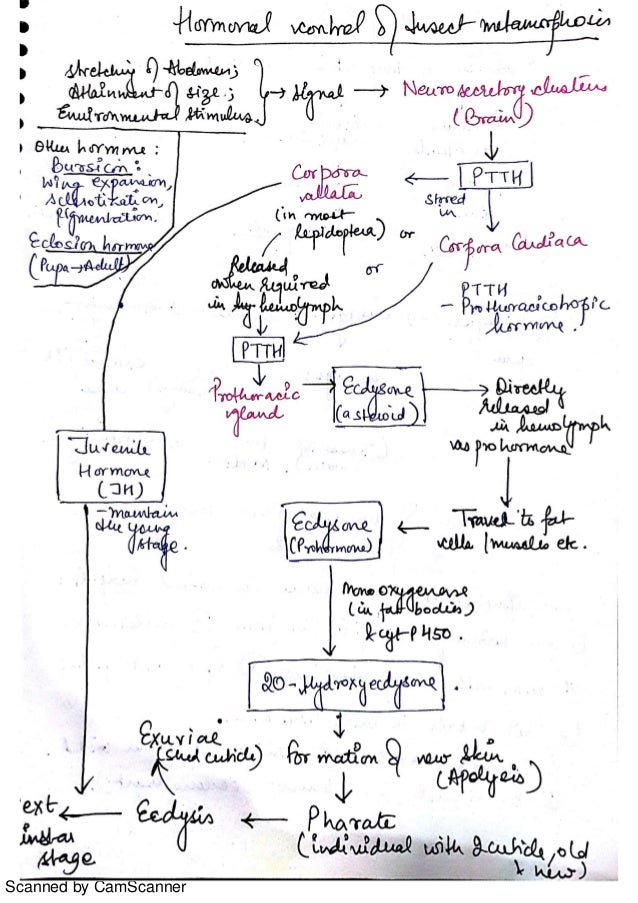 Hormonal control of Insect metamorphosis
Stretching of Abdomen;
Attainment of size;
Environmental Stimulus.
→ Signal →
Neurosecretory clusters
(Brain)
PTTH
stored
in
Corpora
allata
(in most
lepidoptera) or
Corpora Cardiaca
Other hormone :
Bursicon :
wing expansion,
Sclrotization,
pigmentation.
Eclosion hormone
(Pupa→Adult)
Released
when required
in hemolymph
or
PTTH
- Prothoracicotropic
hormone.
PTTH
Prothoracic
gland
Ecdysone
(a steroid)
Directly
released
in hemolymph
as prohormone
Juvenile
Hormone
(JH)
- maintain
the young
stage.
Travel to fat
cells / muscles etc.
Ecdysone
(Prohormone)
Mono oxygenase
(in fat bodies)
& cyt-P450.
20-Hydroxyecdysone.
Exuviae
(shed cuticle)
Formation of new skin
(Apolysis)
Pharate
(individual with 2 cuticle, old
+ new)
Ecdysis
ext
instar
stage
Scanned by CamScanner